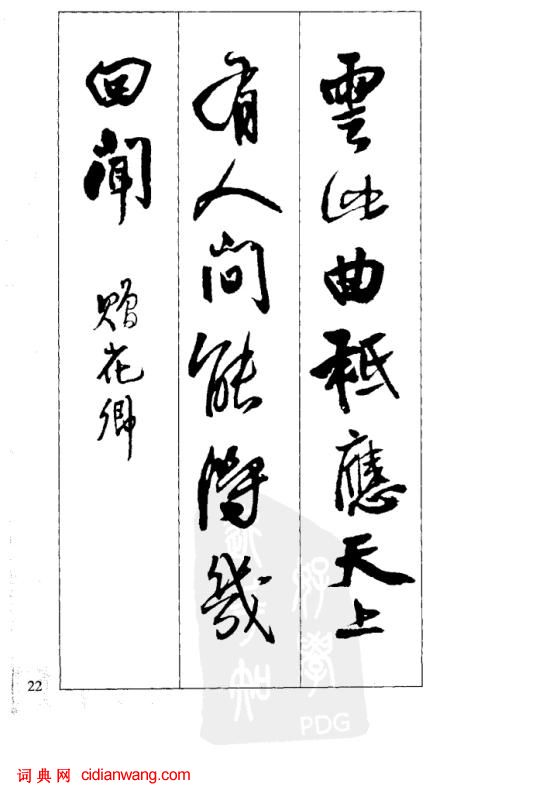 雲此曲秖應天上
有人間能得幾
回聞
贈花卿
22
PDG
词典网 cidianwang.com